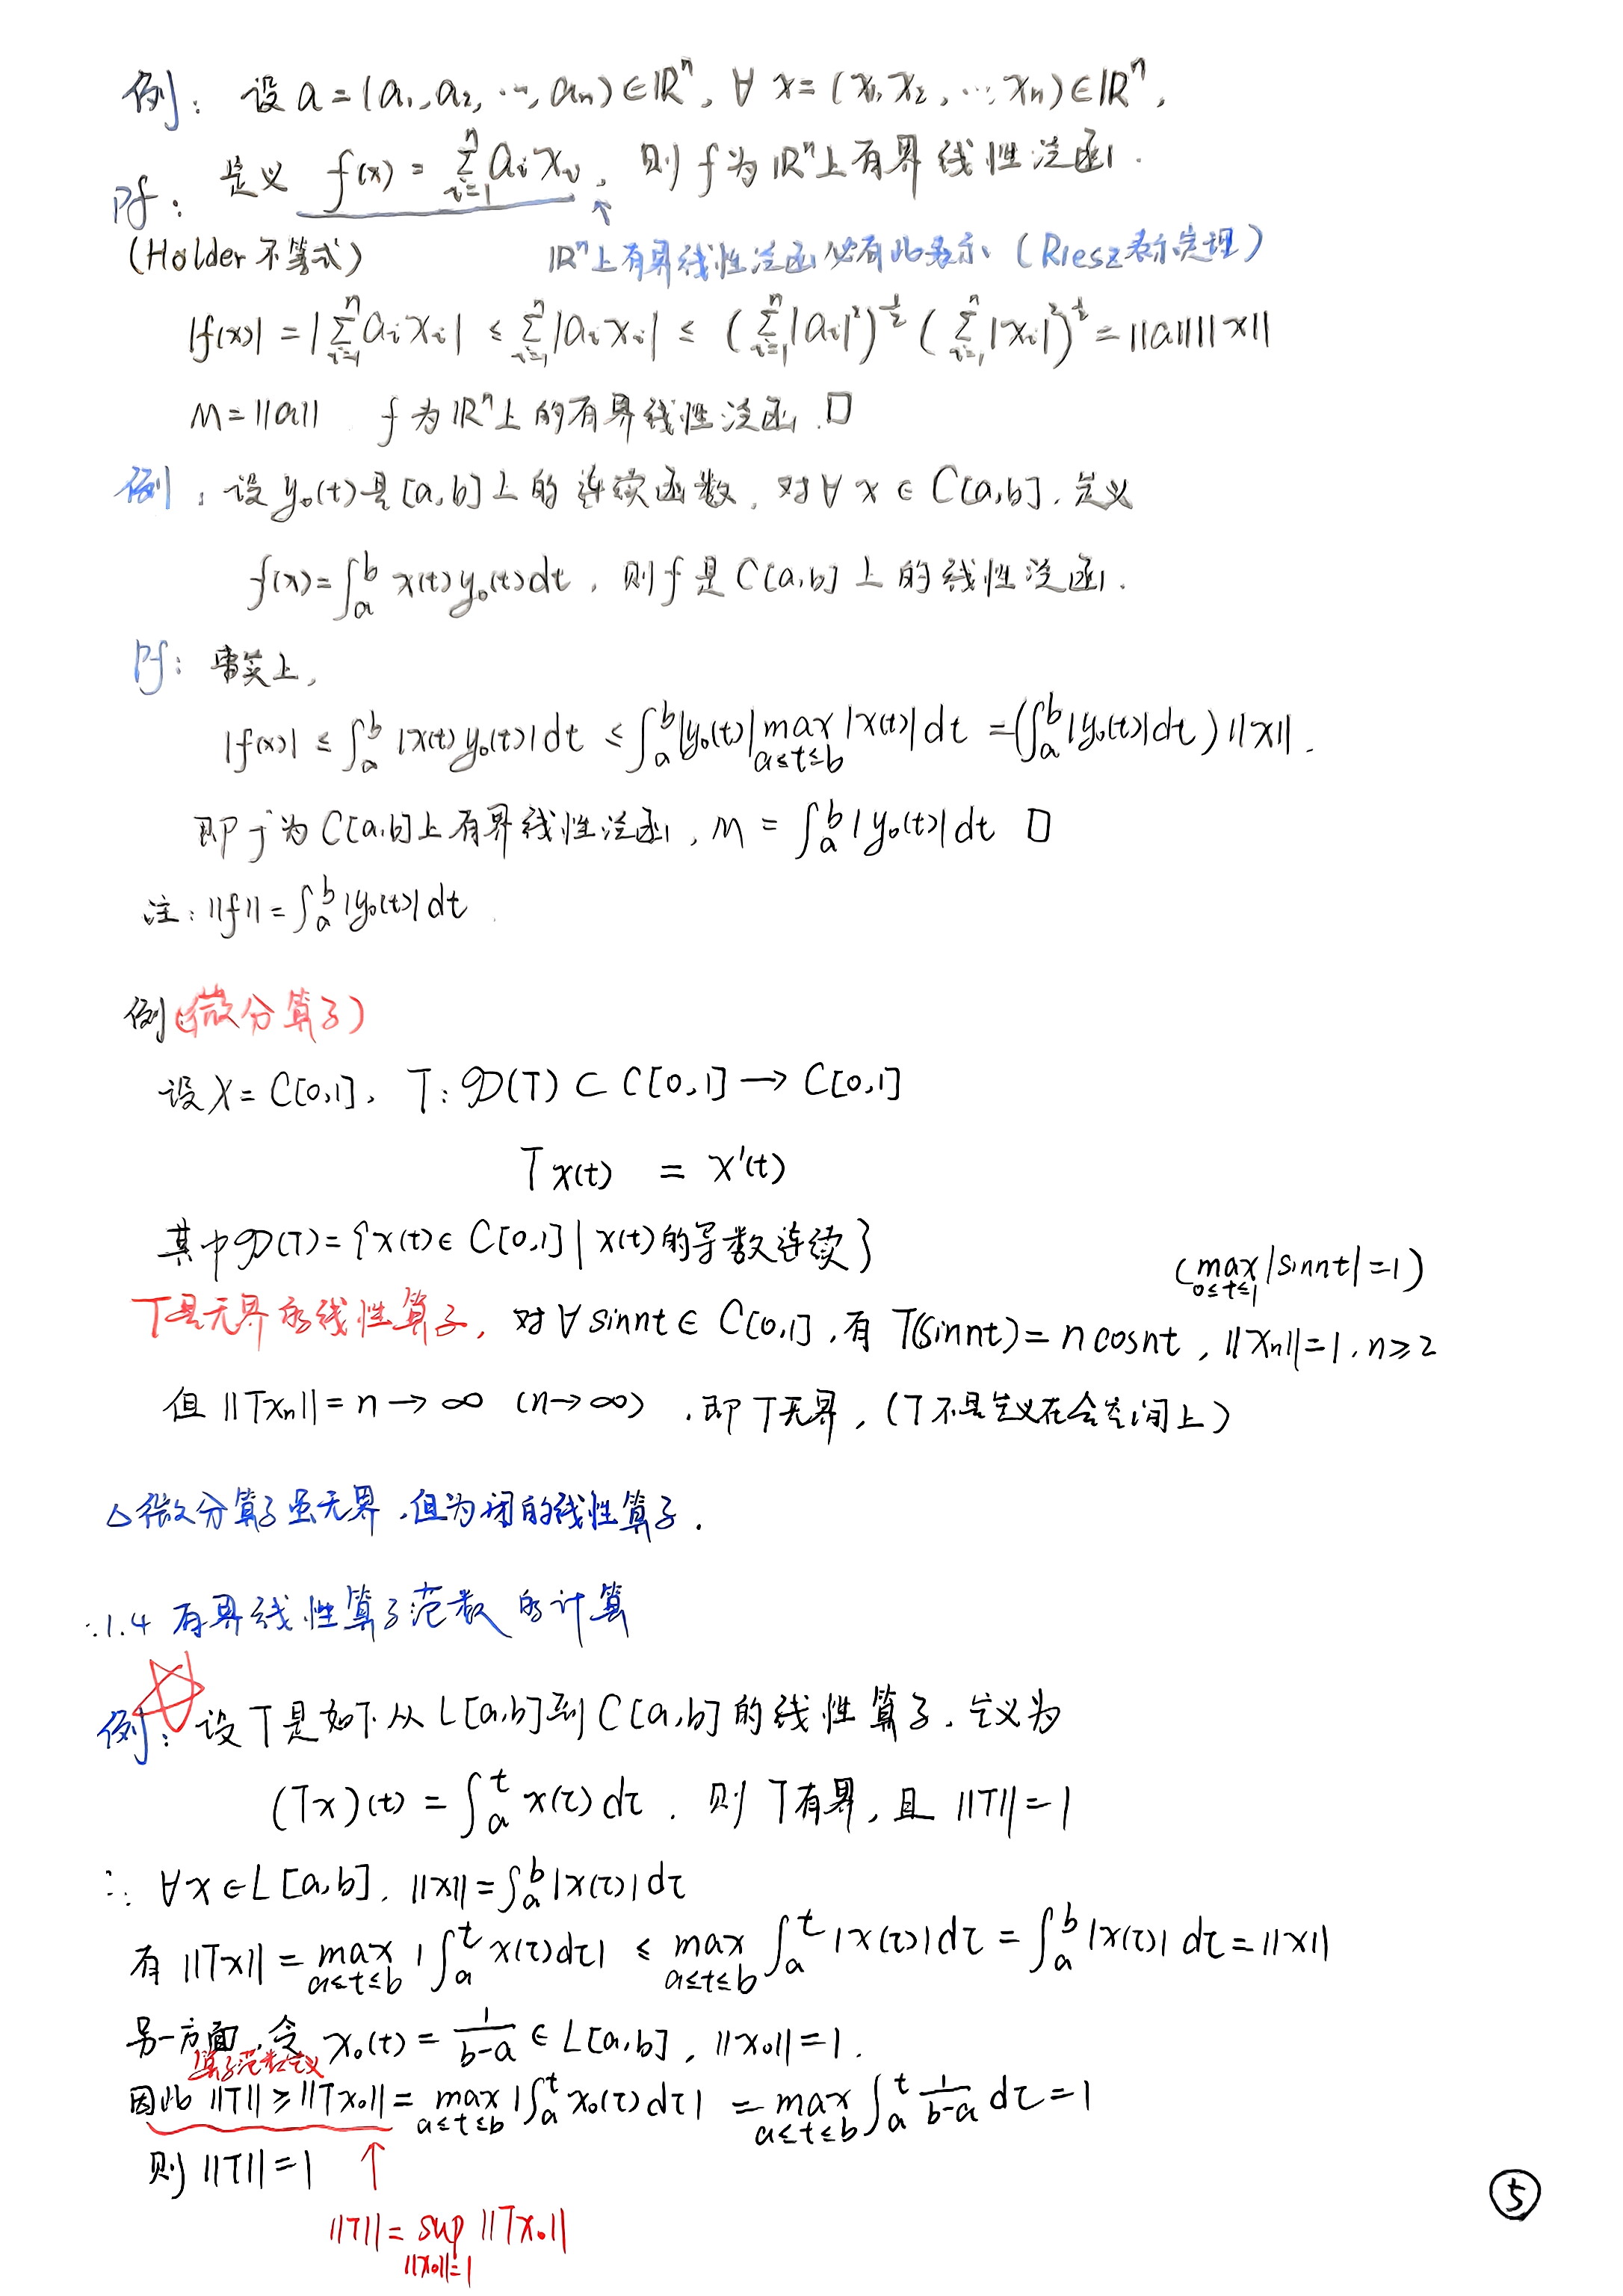 例: 设 a=(a₁,a₂,…,aₙ)∈ℝⁿ, ∀ x=(x₁,x₂,…,xₙ)∈ℝⁿ,
定义 f(x)=∑_{i=1}^{n} aᵢxᵢ, 则 f 为 ℝⁿ 上有界线性泛函.
Pf:
(Hölder 不等式) ↑ ℝⁿ上有界线性泛函必有此表示 (Riesz表示定理)
|f(x)| = |∑_{i=1}^{n} aᵢxᵢ| ≤ ∑_{i=1}^{n} |aᵢxᵢ| ≤ (∑_{i=1}^{n} |aᵢ|²)^{1/2} (∑_{i=1}^{n} |xᵢ|²)^{1/2} = ||a|| ||x||
M=||a|| f 为 ℝⁿ 上的有界线性泛函. □
例: 设 y₀(t) 是 [a,b] 上的连续函数, 对 ∀ x ∈ C[a,b], 定义
f(x)=∫_a^b x(t)y₀(t)dt, 则 f 是 C[a,b] 上的线性泛函.
Pf: 事实上,
|f(x)| ≤ ∫_a^b |x(t)y₀(t)|dt ≤ ∫_a^b |y₀(t)| max_{a≤t≤b} |x(t)| dt = (∫_a^b |y₀(t)|dt) ||x||.
即 f 为 C[a,b] 上有界线性泛函, M = ∫_a^b |y₀(t)|dt □
注: ||f|| = ∫_a^b |y₀(t)|dt.
例 (微分算子)
设 X=C[0,1], T: 𝒟(T) ⊂ C[0,1] → C[0,1]
Tx(t) = x'(t)
其中 𝒟(T)={x(t)∈ C[0,1] | x(t)的导数连续}
(max_{0≤t≤1} |sinnt|=1)
T是无界的线性算子, 对 ∀ sinnt ∈ C[0,1], 有 T(sinnt)= n cosnt, ||xₙ||=1, n≥2
但 ||Txₙ||=n → ∞ (n→∞), 即 T 无界, (T 不是定义在全空间上)
△微分算子虽无界, 但为闭的线性算子.
∵1.4 有界线性算子范数的计算
例: 设 T 是如下从 L[a,b] 到 C[a,b] 的线性算子, 定义为
(Tx)(t) = ∫_a^t x(τ)dτ. 则 T 有界, 且 ||T||=1
∵ ∀x∈L[a,b], ||x||=∫_a^b |x(τ)|dτ
有 ||Tx|| = max_{a≤t≤b} |∫_a^t x(τ)dτ| ≤ max_{a≤t≤b} ∫_a^t |x(τ)|dτ = ∫_a^b |x(τ)| dτ = ||x||
另一方面, 令 x₀(t) = 1/(b-a) ∈ L[a,b], ||x₀||=1.
算子范数定义
因此 ||T|| ≥ ||Tx₀|| = max_{a≤t≤b} |∫_a^t x₀(τ)dτ| = max_{a≤t≤b} ∫_a^t 1/(b-a) dτ = 1
则 ||T||=1 ↑
⑤
||T|| = sup_{||x₀||=1} ||Tx₀||